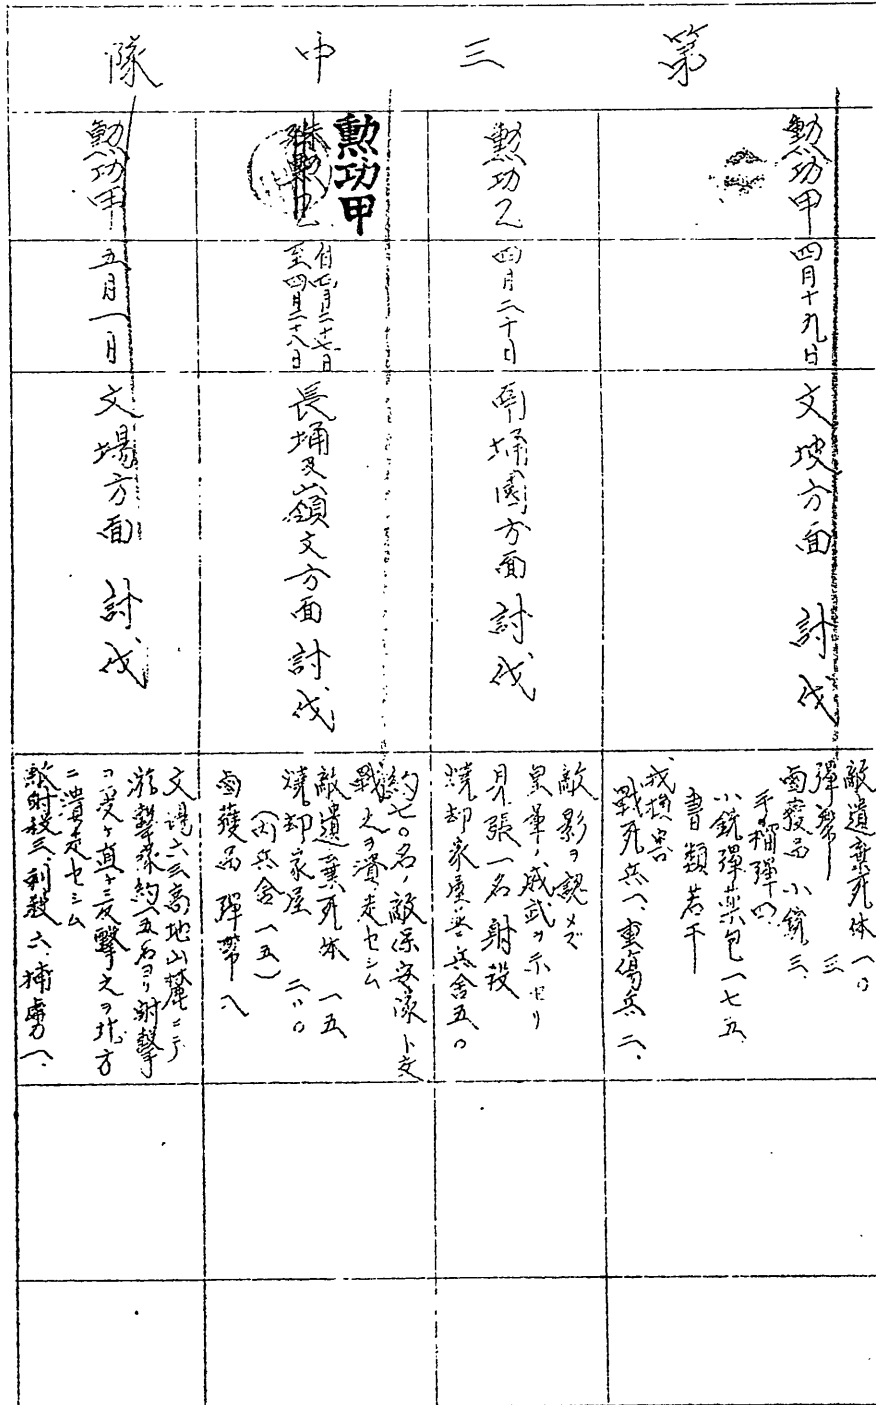 第三中隊
勲功甲
四月十九日
文坡方面 討伐
敵遺棄死体一〇
彈帶 三
鹵獲品 小銃 三、
手榴彈 四、
小銃彈薬包 一七五
書類若干
我損害
戰死兵一、重傷兵二、
勲功乙
四月二十日
埇園方面 討伐
敵影ヲ認メズ
皇軍ノ威武ヲ示セリ
見張一名射殺
燒却家屋 兵舍五〇
勲功甲
殊勲乙
自四月二十七日
至四月二十八日
長埇及嶺文方面 討伐
約七〇名ノ敵保安隊ト交
戰之ヲ潰走セシム
敵遺棄死体 一五
燒却家屋 二〇〇
(内兵舍 一五)
鹵獲品 彈帶 八
勲功甲
五月一日
文場方面 討伐
文場六三高地山麓ニテ
游擊隊約一五名ヨリ射擊
ヲ受ケ直チニ反擊之ヲ北方
ニ潰走セシム
敵射殺三、刺殺六、捕虜一、